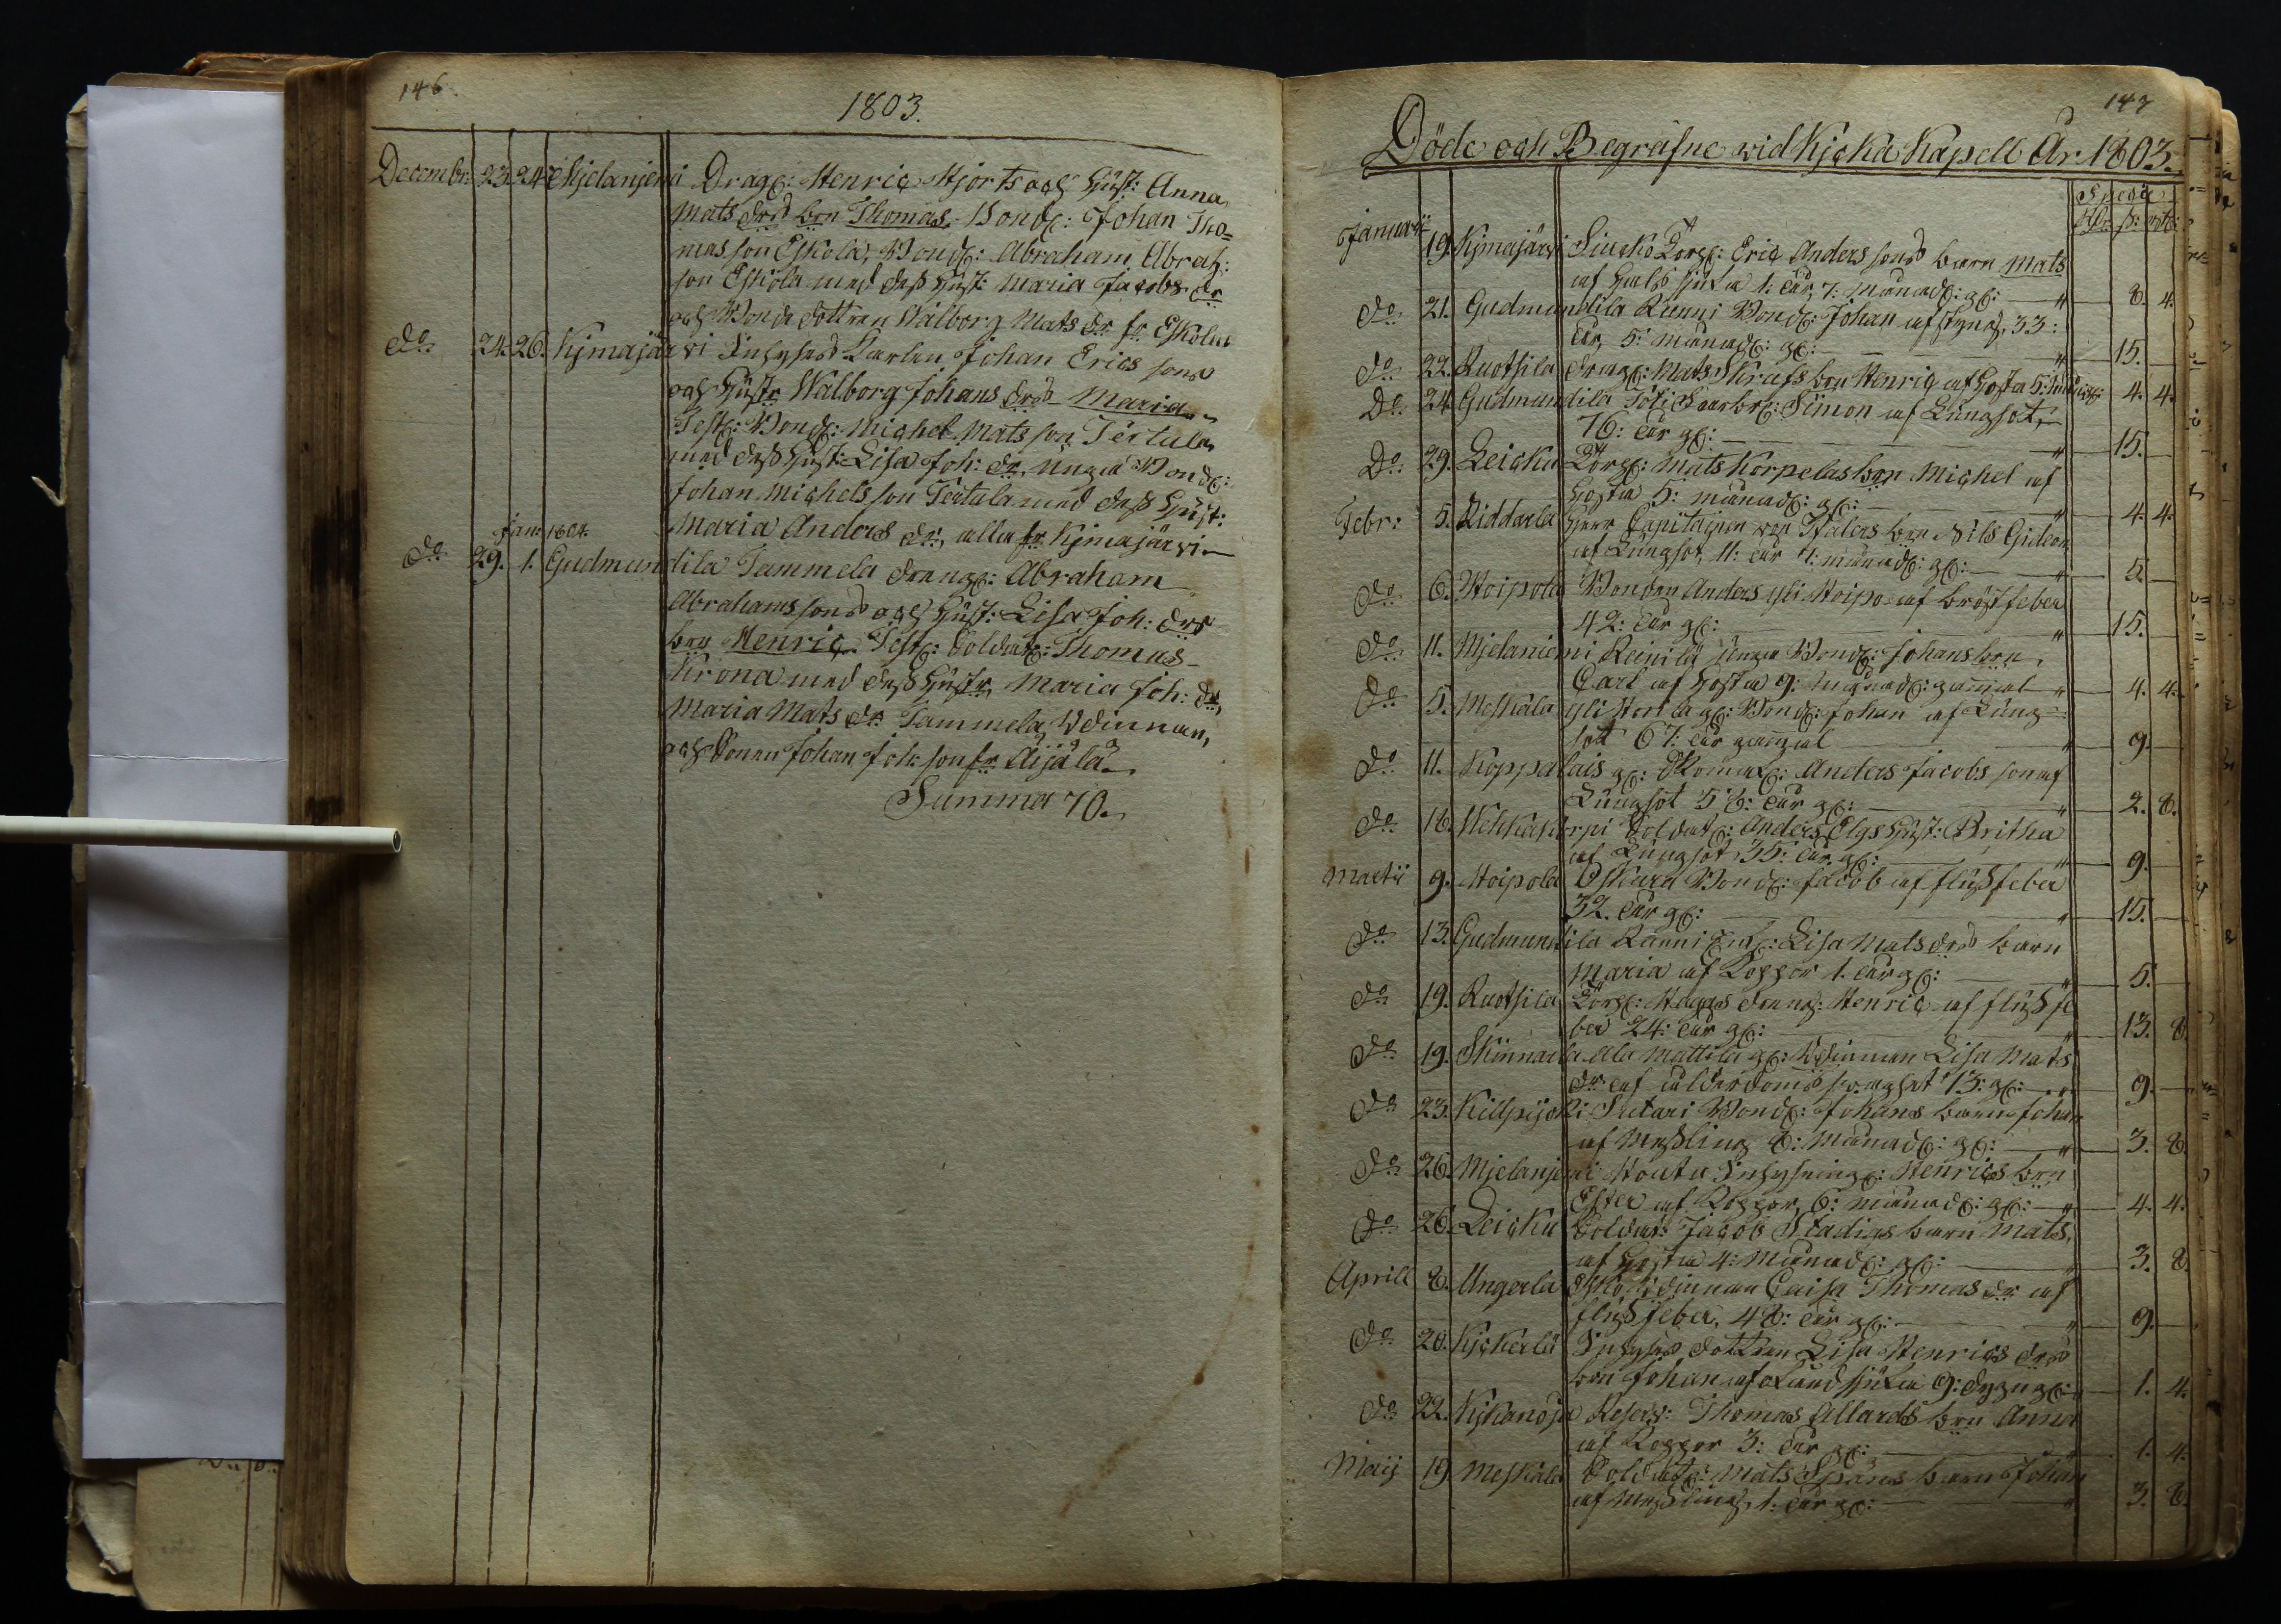 146.
1803.
Decembr: 23. 24. Mjelanjemi Drag: Henric Hjorts och Hust: Anna
Mats drs brn Thomas. Bond: Johan Tho=
mas son Eskola, Bond: Abraham Abrah:
son Eskola med dess Hust: Maria Jacobs dr
och Bonde dottren Walborg Mats dr fr Eskola
do 24. 26. Kjmajärvi Inhyses Karlen Johan Erics sons
och Hustr Walborg Johans drs Maria.
Test: Bond: Michel Mats son Tertula
med dess Hust: Lisa Joh: dr, unga Bond:
Johan Michels son Tertula med dess Hust:
Maria Anders dr, alla fr Kjmajärvi
Jan: 1804.
do 29. 1. Gudmundila Tammela dräng: Abraham
Abrahams sons och Hust: Lisa Joh: drs
brn Henric. Test: Soldat: Thomas
Krona med dess Hustr Maria Joh: dr,
Maria Mats dr Tammela, Wdinnan,
och Sonen Johan Joh: son fr Äijälä
Summa 70.
147
Döde och Begrafne wid Kjckå Kapell År 1803.
Specie
Rdr. s: rst:
Januarii 19. Kjmajärvi Siucko Torp: Eric Anders sons barn Mats
af Hals siuka 1: år, 7: månad: gl: — " — 8. 4.
do 21. Gudmundila Runni Bond: Johan af styng, 33:
år, 5: månad: gl: — " — 15. —
do 22. Ruotsila drag: Mats Skrafs brn Henric af Hosta 5: månad: 4. 4.
Do 24. Gudmundila Töli Simon af Lungsot,
76: år gl: — " — 15. —
Do 29. Leicku Torp: Mats Korpelas brn Michel af
Hosta 5: månad: gl: — " — 4. 4.
Febr: 5. Riddarla Herr Capitainen von brn Nils Gideon
af Lungsot, 11: år 4: månad: gl: — " — 5. —
do 6. Hoipola Bonden Anders yli Hoipo af bröstfeber
42: år gl: — " — 15. —
do 11. Mjelaniemi Reinilä unga Bond: Johans brn
Carl af Hosta 9: månad: gamal " — 4. 4.
do 5. Meskala yli gl: Bond: Johan af Lung
sot 67. år gamal — " — 9. —
do 11. Koppalais gl: Skomak: Anders Jacobs son af
Lungsot 58: år gl: — " — 2. 8.
do 18. Wehkakorpi Soldat: Anders Elgs Hust: Britha
af Lungsot 35: år gl: — " — 9. —
Martii 9. Hoipola Oskara Bond: Jacob af flussfeber
32. år gl: — " — 15. —
do 13. Gudmundila Ranni Lisa Mats drs barn
Maria af Koppor 1. år gl: — " — 5. —
do 19. Ruotsila Torp: dräng: Henric af fluss fe
ber 24: år gl: — " — 13. 8.
do 19. Skinnarla Ala Mattila gl: Wdinnan Lisa Mats
dr af ålderdoms swaghet 73: gl: — " — 9. —
do 23. Killpijoki Sutari Bond: Johans barn Johan
af Messling 8: månad: gl: — " — 3. 8.
do 26. Mjelanjemi Houta Inhysning: Henrics brn
Ester af Koppor, 6: månad: gl: — " — 4. 4.
do 26. Leicku Soldat: Jacob Stadigs barn Mats,
af Hosta 4: månad: gl: — " — 3. 8.
Aprill 8. Ungerla Wdinnan Caisa Thomas dr af
fluss feber, 48: år gl: — " — 9. —
do 20. Kjckerlä Inhyses dottren Lisa Henrics drs
brn Johan af okänd siuka 9: dygn gl: " — 1. 4.
do 22. Kjckanoja Reserv: Thomas Allards brn Anna
af Koppor 3: år gl: — " — 1. 4.
Maij 19. Meskala Soldat: Mats Sparas barn Johan
af Messling, 1: år gl: — " — 3. 8.